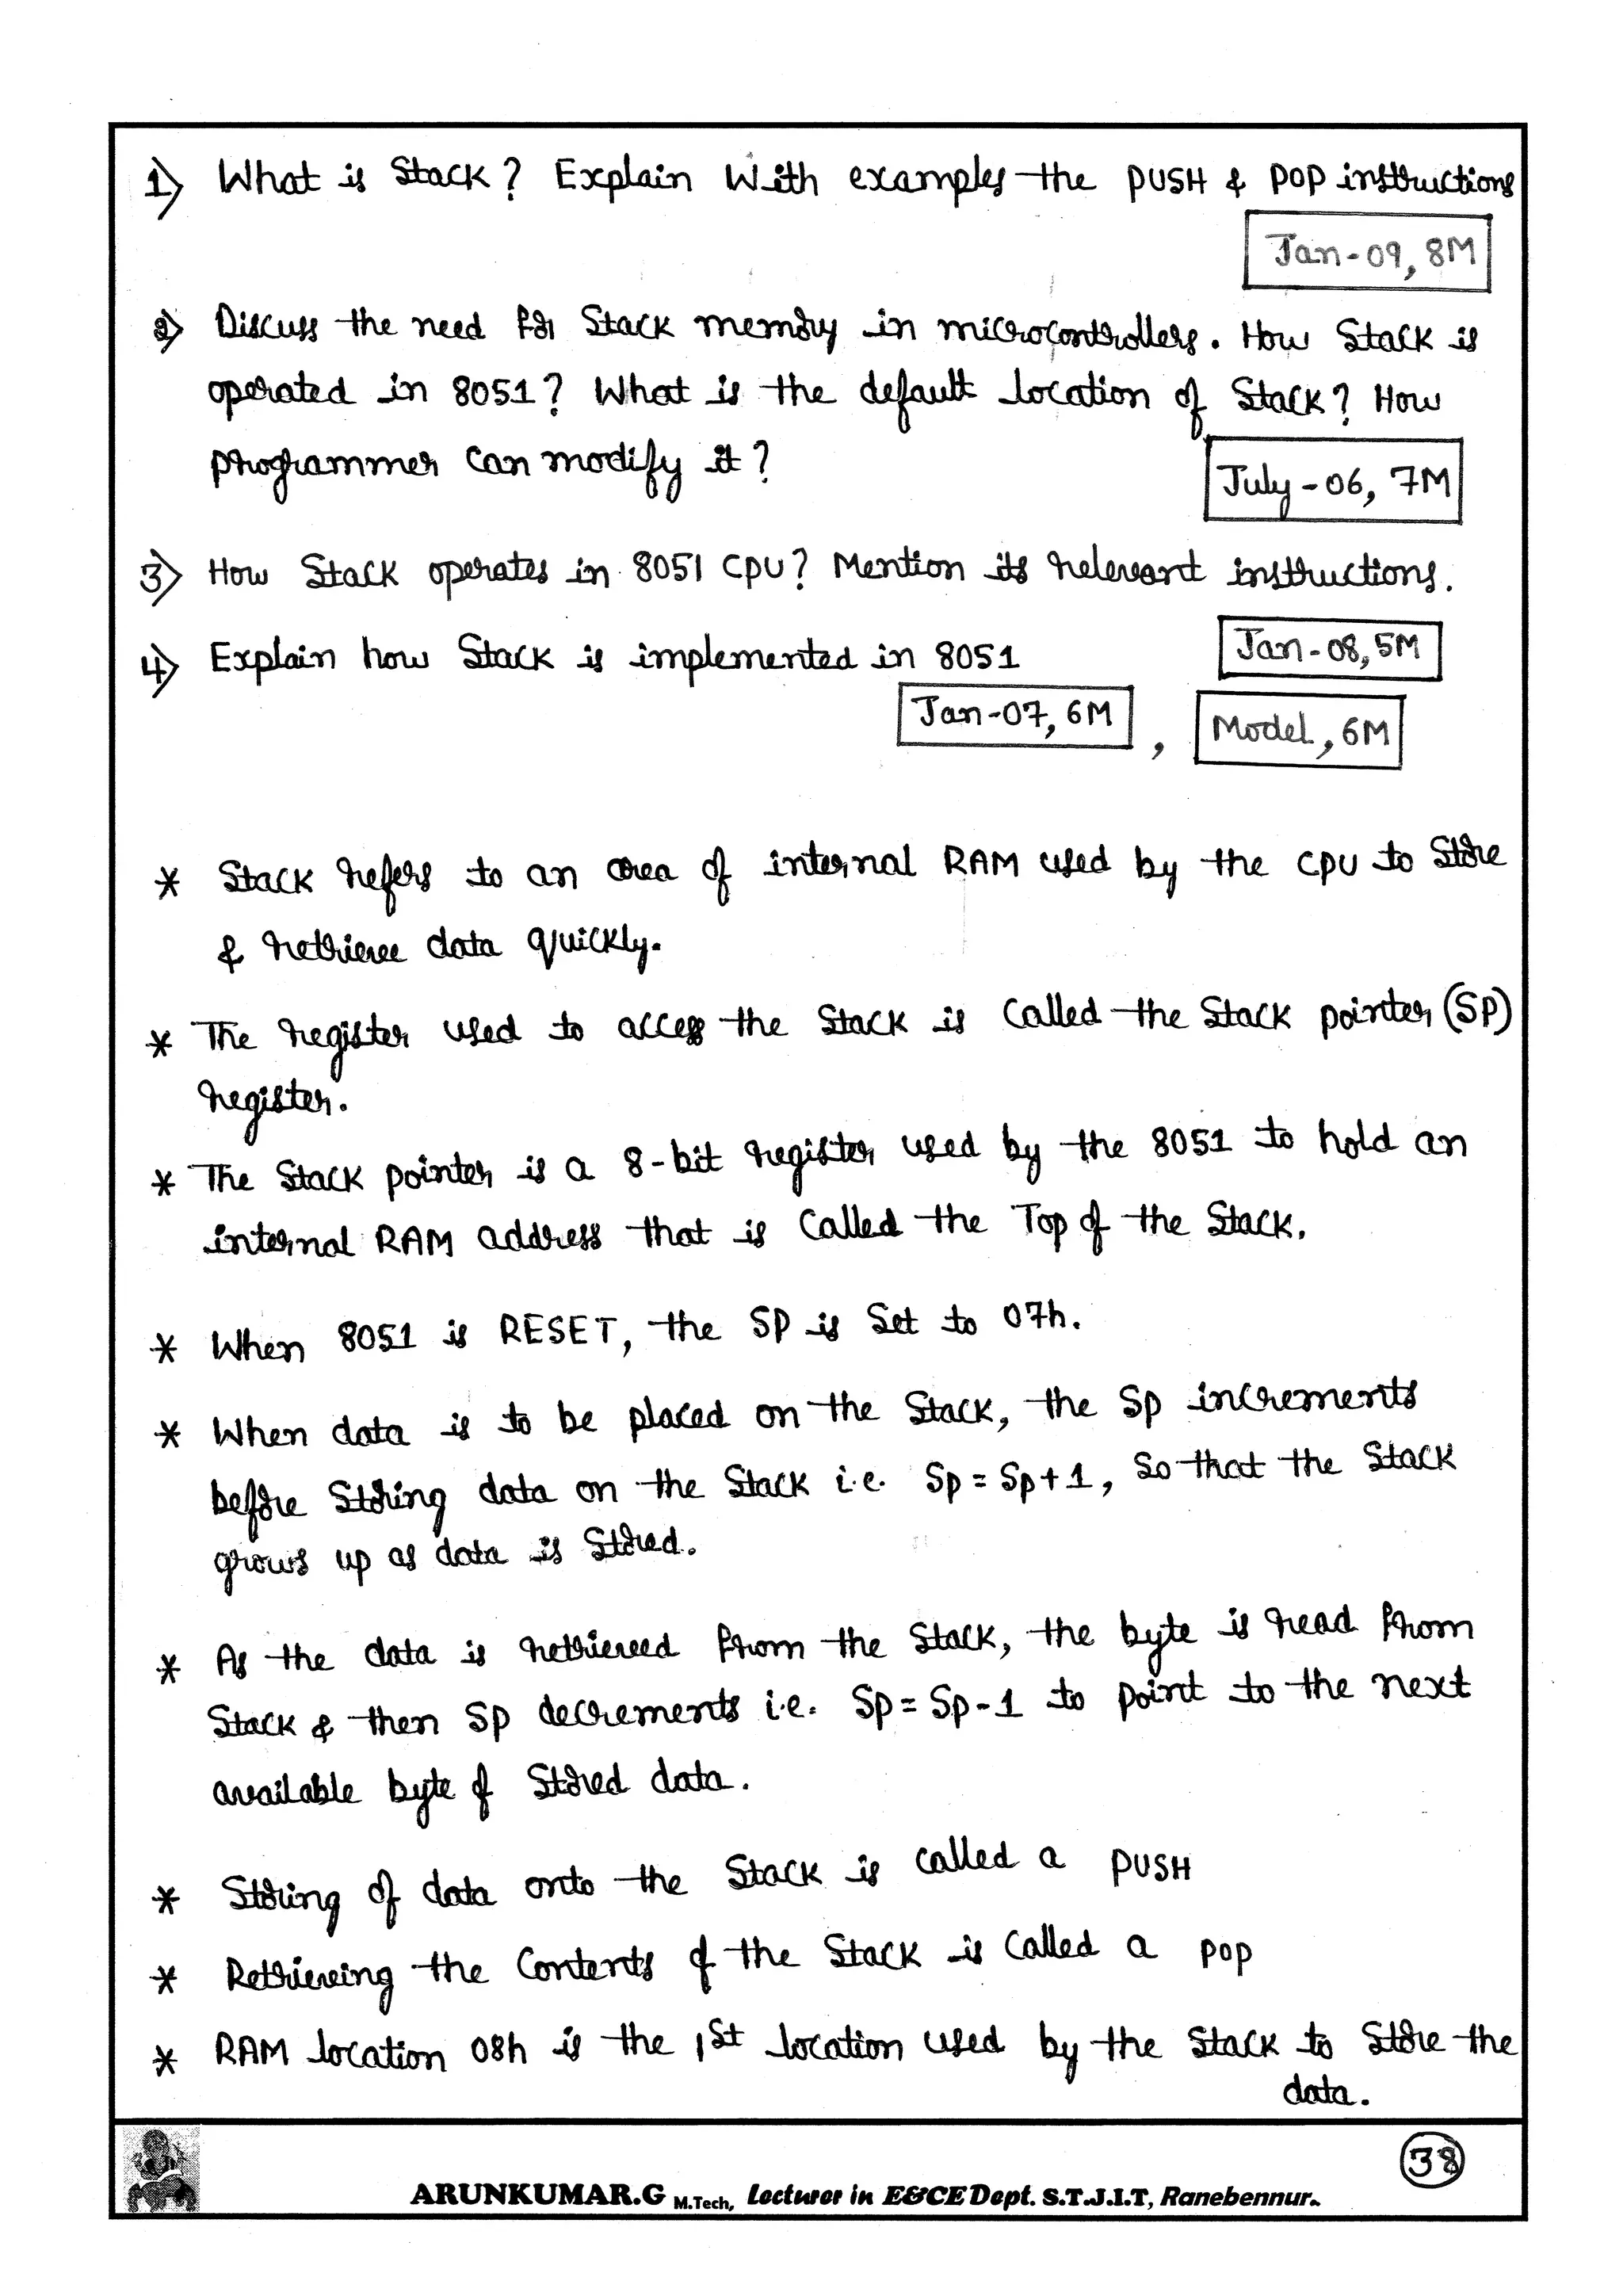 1) What is Stack? Explain with examples the PUSH & POP instructions
Jan-09, 8M
2) Discuss the need for Stack memory in microcontrollers. How Stack is
operated in 8051? What is the default location of Stack? How
programmer can modify it?
July-06, 7M
3) How Stack operates in 8051 CPU? Mention its relevant instructions.
Jan-08, 5M
4) Explain how Stack is implemented in 8051
Jan-07, 6M , Model, 6M
* Stack refers to an area of internal RAM used by the CPU to store
& retrieve data quickly.
* The register used to access the Stack is called the Stack pointer (SP)
register.
* The Stack pointer is a 8-bit register used by the 8051 to hold an
internal RAM address that is called the Top of the Stack.
* When 8051 is RESET, the SP is set to 07h.
* When data is to be placed on the Stack, the SP increments
before storing data on the Stack i.e. SP = SP+1, so that the Stack
grows up as data is stored.
* As the data is retrieved from the Stack, the byte is read from
Stack & then SP decrements i.e. SP = SP-1 to point to the next
available byte of stored data.
* Storing of data onto the Stack is called a PUSH
* Retrieving the contents of the Stack is called a POP
* RAM location 08h is the 1st location used by the Stack to store the
data.
38
ARUNKUMAR.G M.Tech, Lecturer in E&CE Dept. S.T.J.I.T, Ranebennur.